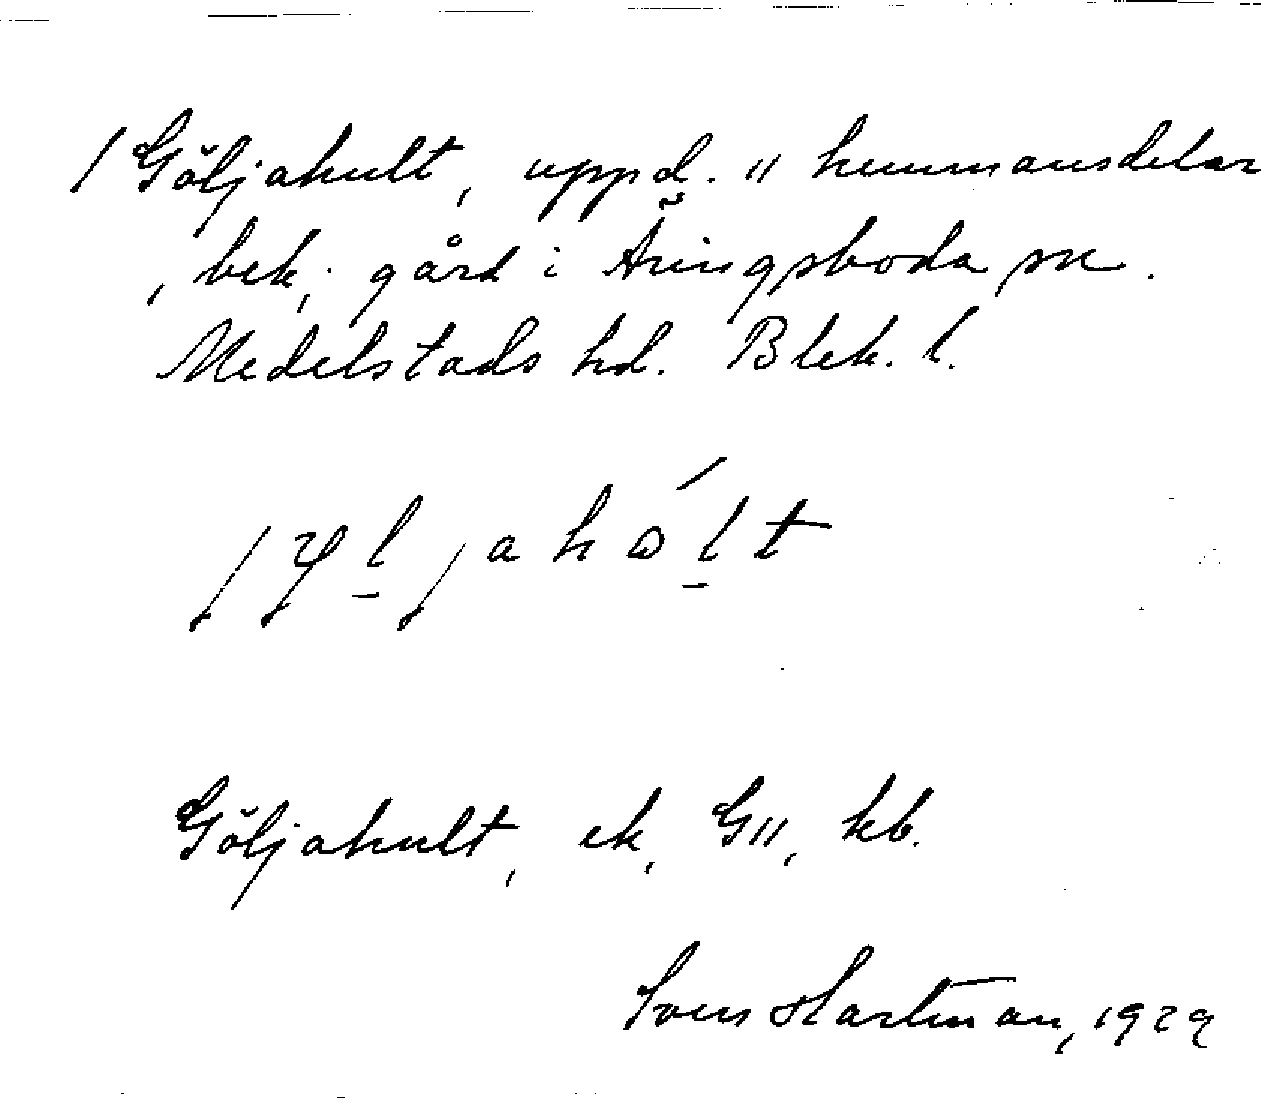 / Göljahult, uppd. " hemmansdelar
, bek, gård i Äringsboda sn.
Medelstads hd. Blek. l.
Göljahult, ek, G11, kb.
Sven Hartman, 1929